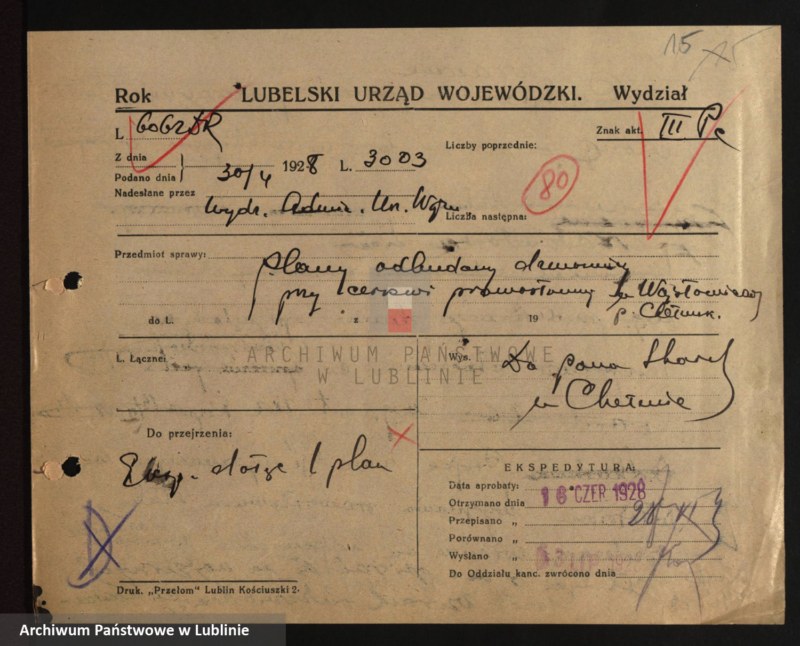 15
Rok LUBELSKI URZĄD WOJEWÓDZKI. Wydział
L
Znak akt. III
Z dnia
Liczby poprzednie:
Podano dnia 30/4 1928 L. 3003
80
Nadesłane przez
Wydz. Un.
Liczba następna:
Przedmiot sprawy:
Plany odbudowy dzwonnicy
przy cerkwi prawosławnej w
do L. z 19 p. Chełmsk.
ARCHIWUM PAŃSTWOWE
W LUBLINIE
L. Łącznej
Wys.
Do pana
w Chełmie
Do przejrzenia:
Eksp. 1 plan
EKSPEDYTURA:
Data aprobaty:
Otrzymano dnia 16 CZER 1928
Przepisano „
Porównano „
Wysłano „
Do Oddziału kanc. zwrócono dnia
Druk. „Przełom” Lublin Kościuszki 2·
Archiwum Państwowe w Lublinie